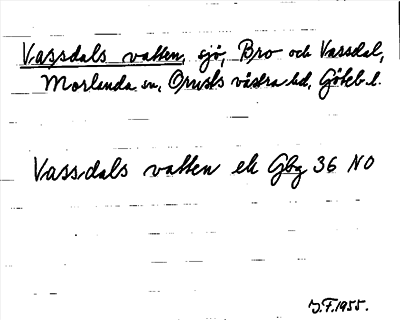 Vassdals vatten, sjö, Bro och Vassdal,
Morlanda sn, Orusts västra hd, Göteb. l.
Vassdals vatten ek Gbg 36 NO
J.F. 1955.